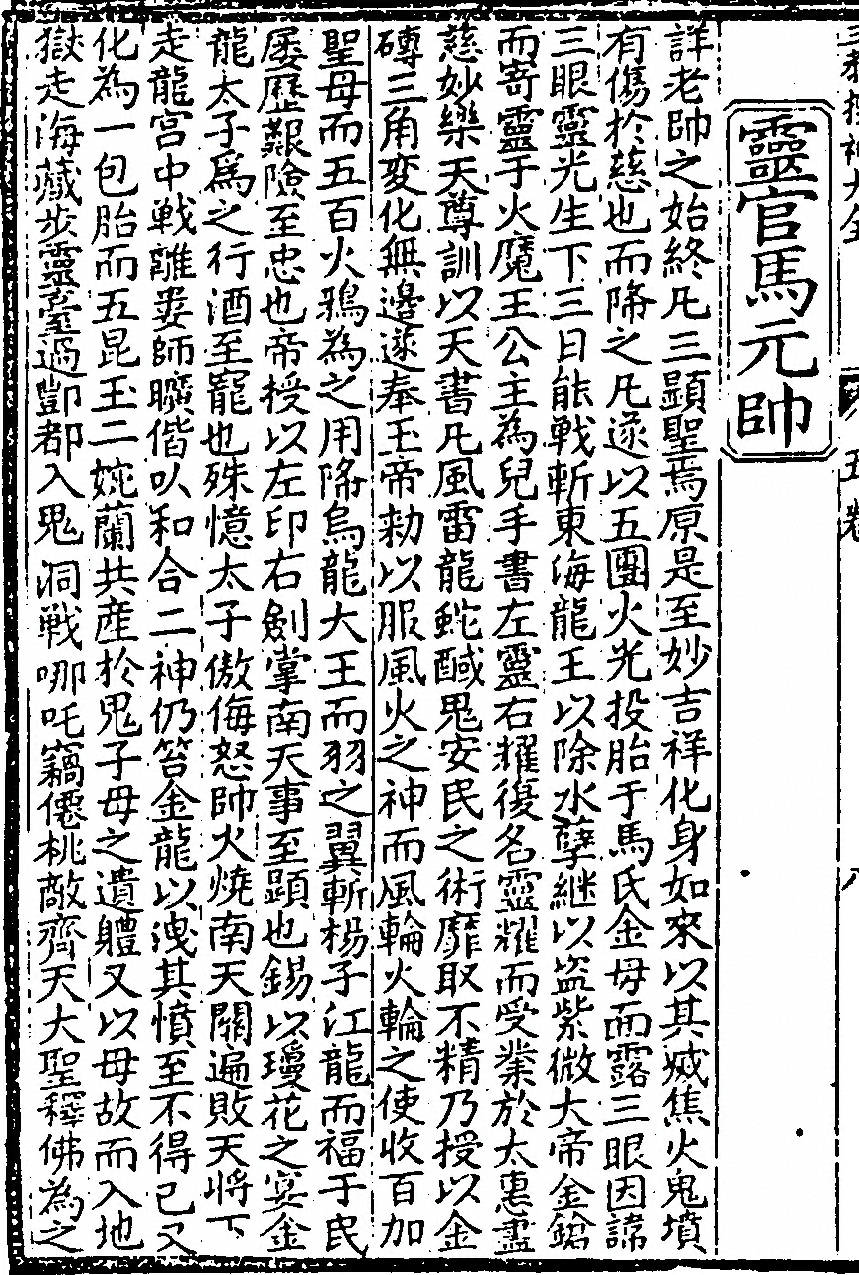 三教搜神大全
五卷
八
靈官馬元帥
詳老帥之始終凡三顯聖焉原是至妙吉祥化身如來以其滅焦火鬼墳
有傷於慈也而降之凡遂以五團火光投胎于馬氏金母面露三眼因諦
三眼靈光生下三日能戰斬東海龍王以除水孽継以盜紫微大帝金鎗
而寄靈于火魔王公主為兒手書左靈右耀復名靈耀而受業於太惠盡
慈妙樂天尊訓以天書凡風雷龍蛇馘鬼安民之術靡取不精乃授以金
磚三角変化無邊遂奉玉帝勑以服風火之神而風輪火輪之使收百加
聖母而五百火鴉為之用降烏龍大王而羽之翼斬楊子江龍而福于民
屡歷艱險至忠也帝授以左印右劍掌南天事至顕也錫以瓊花之宴金
龍太子爲之行酒至寵也殊憶太子傲侮怒帥火燒南天關遍敗天將下
走龍宮中戰離婁師曠偕以和合二神仍笞金龍以洩其憤至不得已又
化為一包胎而五昆玉二婉蘭共産於鬼子母之遺體又以母故而入地
獄走海藏步靈臺過酆都入鬼洞戰哪吒竊僊桃敵齊天大聖釋佛為之